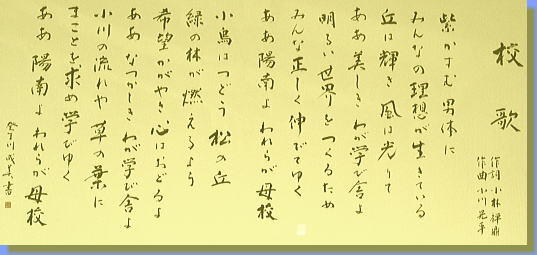 校歌
作詞 小林祥朔
作曲 小川亮平
紫かすむ男体に
みんなの理想が生きている
丘は輝き風は光りて
ああ美しきわが学び舎よ
明るい世界をつくるため
みんな正しく伸びてゆく
ああ陽南よわれらが母校
小鳥はつどう松の丘
緑の林が燃えるよう
希望かがやき心はおどるよ
ああなつかしきわが学び舎よ
小川の流れや草の葉に
まことを求め学びゆく
ああ陽南よわれらが母校